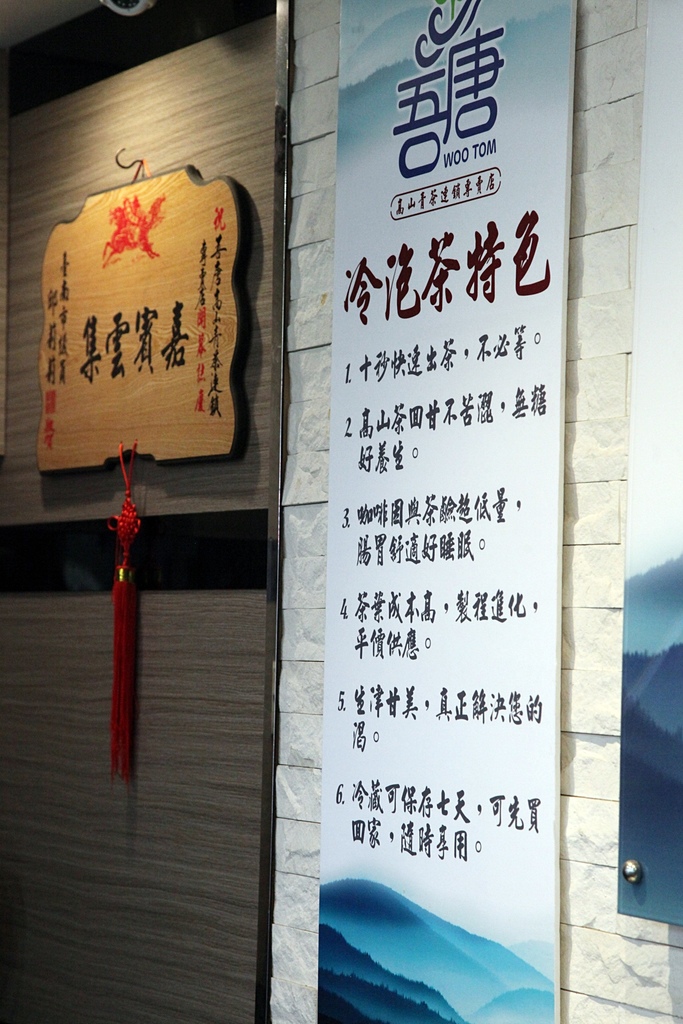 祝 吾唐高山青茶連鎖
專賣店開幕誌慶
嘉賓雲集
臺南市議員
邱莉莉
吾唐
WOO TOM
高山青茶連鎖專賣店
冷泡茶特色
1. 十秒快速出茶，不必等。
2. 高山茶回甘不苦澀，無糖
好養生。
3. 咖啡因與茶鹼超低量，
腸胃舒適好睡眠。
4. 茶葉成本高，製程進化，
平價供應。
5. 生津甘美，真正解決您的
渴。
6. 冷藏可保存七天，可先買
回家，隨時享用。